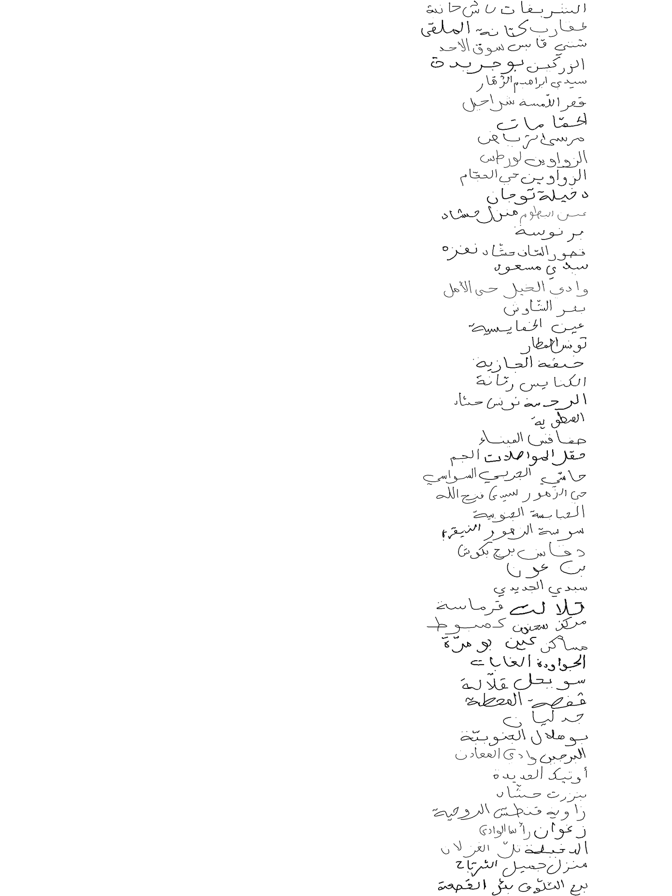 الشريفات باش حانة
عقارب كتانة الملقى
شنني قابس سوق الاحد
الزركين بوجريدة
سيدي ابراهيم الزهار
قصر اللمسة شراحيل
الحمّامات
مرسى الرياض
الرواوين لورطس
الرواوين حي الحمّام
دخيلة توجان
منزل حشاد
برنوسة
قصور الساف حشاد نفزة
سيدي مسعود
وادي الخيل حي الأمل
بئر الشاوش
عين الخمايسية
تونس المطار
خنقة الجازية
الكنايس رتانة
الرحمة تونس حشاد
العطوية
صفاقس الميناء
حقل المواصلات الجم
حامي الجربي السواسي
حي الزهور سيدي فرج الله
الصابسة الجنوبية
سوسة الزهور
دقاش برج بكوش
بن عون
سيدي الجديدي
تلالت قرماسة
مركز سحنون كمبوط
مساكن عين بو مرّة
الجواودة الغابات
سويحل قلّالة
قفصة المحطة
جدليان
بوهلال الجنوبيّة
البرجين وادي المعادن
أوتيك الجديدة
بنزرت حشّاد
زاوية قنطش الروحية
زغوان رأس الوادي
الدخيلة تلّ الغزلان
منزل جميل الترياح
برج الثلوث بئر القصعة